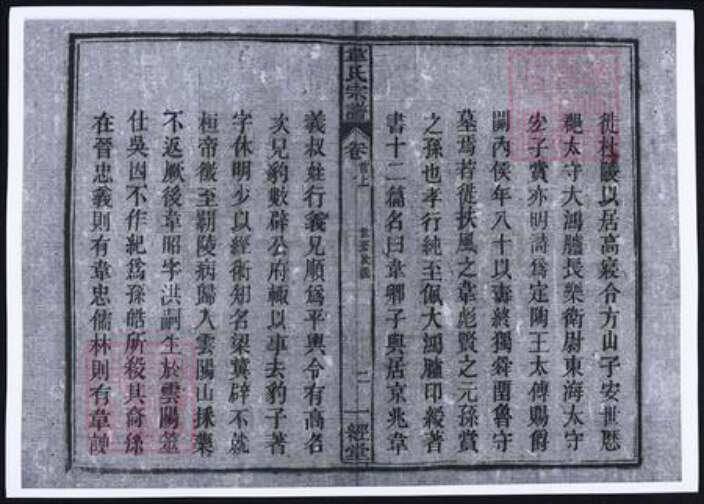 徙杜陵以居高寢令方山子安世歷
魏太守大鴻臚長樂衛尉東海太守
宏子賞亦明詩爲定陶王太傅賜爵
關內侯年八十以壽終獨舜葬魯守
墓焉若徙扶風之韋彪賢之元孫賞
之孫也孝行純至佩大鴻臚印綬著
書十二篇名曰韋卿子與居京兆韋
韋氏宗譜 卷首上 二 一經堂
義叔姪行義兄順爲平輿令有高名
次兄豹數辟公府輒以事去豹子著
字休明少以經術知名梁冀辟不就
桓帝徵至覇陵病歸入雲陽山採藥
不返厥後韋昭字洪嗣生於雲陽筮
仕吳因不作紀爲孫皓所殺其裔孫
在晉忠義則有韋忠儒林則有韋謏